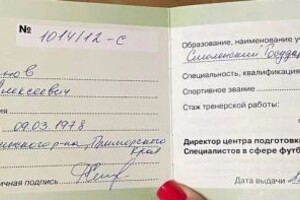 № 1014/12-с
нов
лексеевич
ния
09.03.1978
р-на Приморского
края
ичная подпись
Образование, наименование уч
Смоленский Государ
Специальность, квалификация
Спортивное звание
Стаж тренерской работы:
Директор центра подготов
Специалистов в сфере футб
Дата выдачи